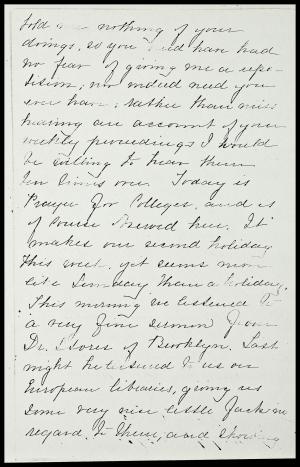 told me nothing of your
doings, so you need have had
no fear of giving me a repe-
tition; nor indeed need you
ever have; rather than miss
hearing an account of your
weekly proceedings I would
be willing to hear them
ten times over. Today is
Prayer for Colleges, and is
of course observed here. It
makes our second holiday
this week, yet seems more
like Sunday than a holiday.
This morning we listened to
a very fine sermon from
Dr. Storrs of Brooklyn. Last
night he to us on
European libraries, giving us
some very nice little facts in
regard to them, and showing